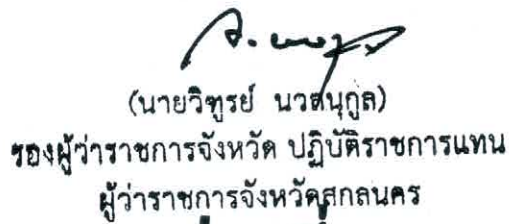 (นายวิฑูรย์ นวลนุกูล)
รองผู้ว่าราชการจังหวัด ปฏิบัติราชการแทน
ผู้ว่าราชการจังหวัดสกลนคร